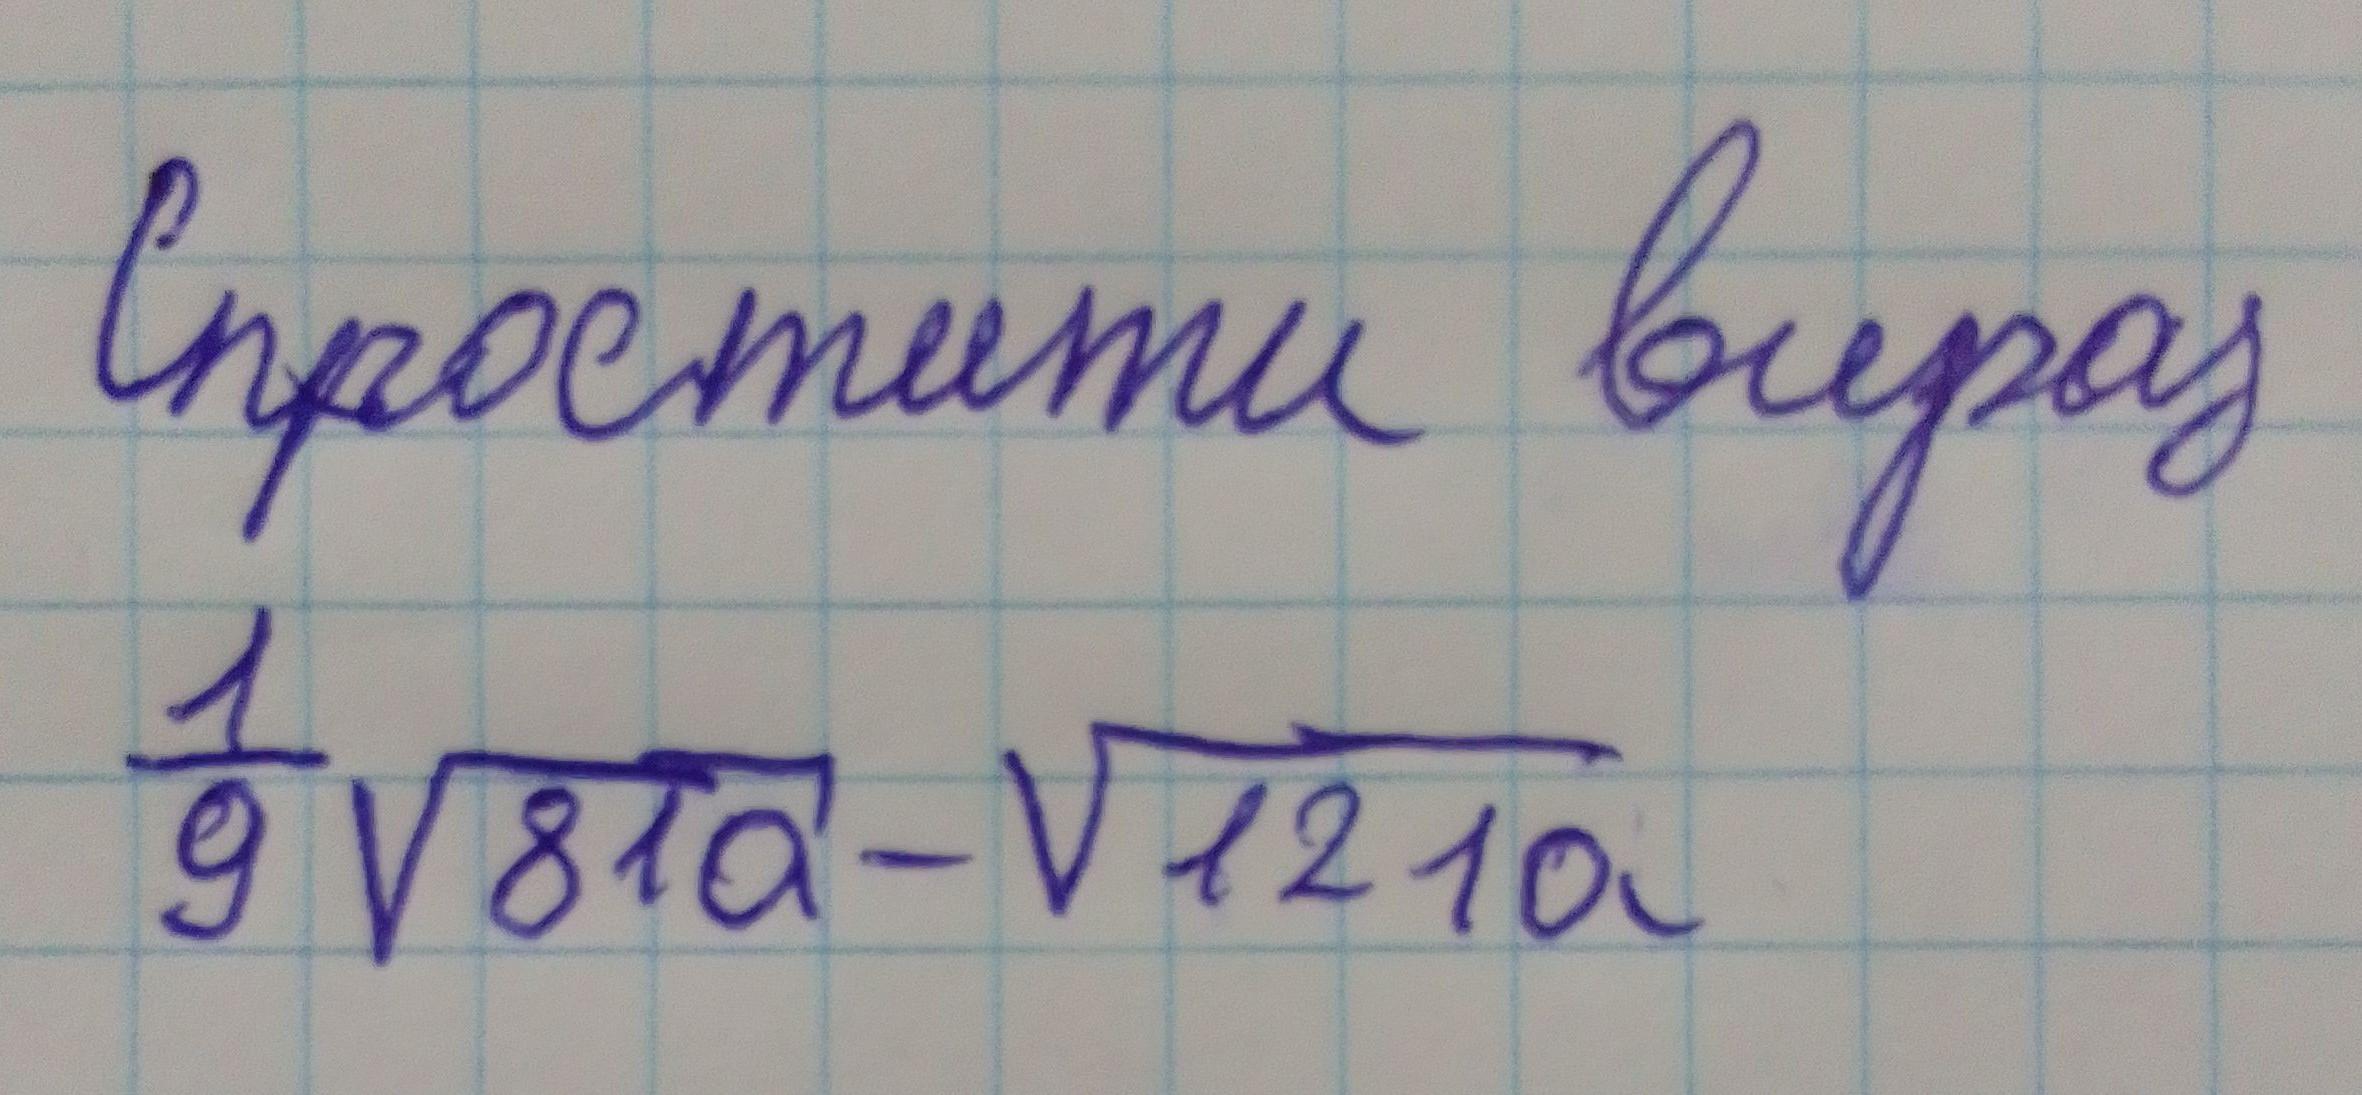 Спростити вираз
1/9 √81a - √121a